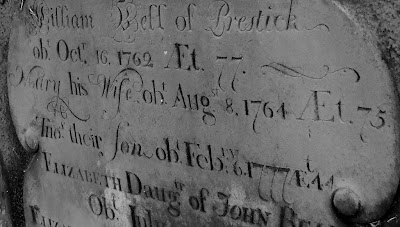 William Bell of Prestick
ob: Octr. 16. 1762 Æt. 77.
Mary his Wife ob: Augst 8. 1764 Æt. 75.
Thos their son ob: Febry 6. 1777 Æt 44
ELIZABETH Daugtr of JOHN
Ob: July
ELIZAB